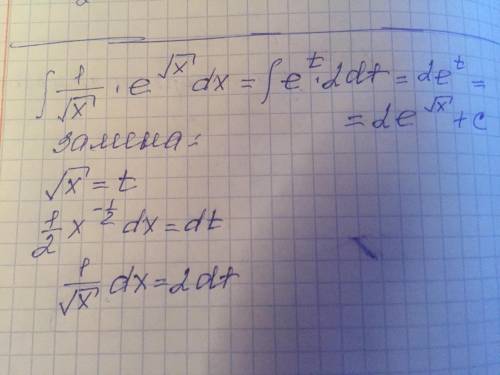 ∫ 1/√x · e^√x dx = ∫ e^t · 2dt = 2e^t =
= 2e^√x + c
замена:
√x = t
1/2 x^(-1/2) dx = dt
1/√x dx = 2dt